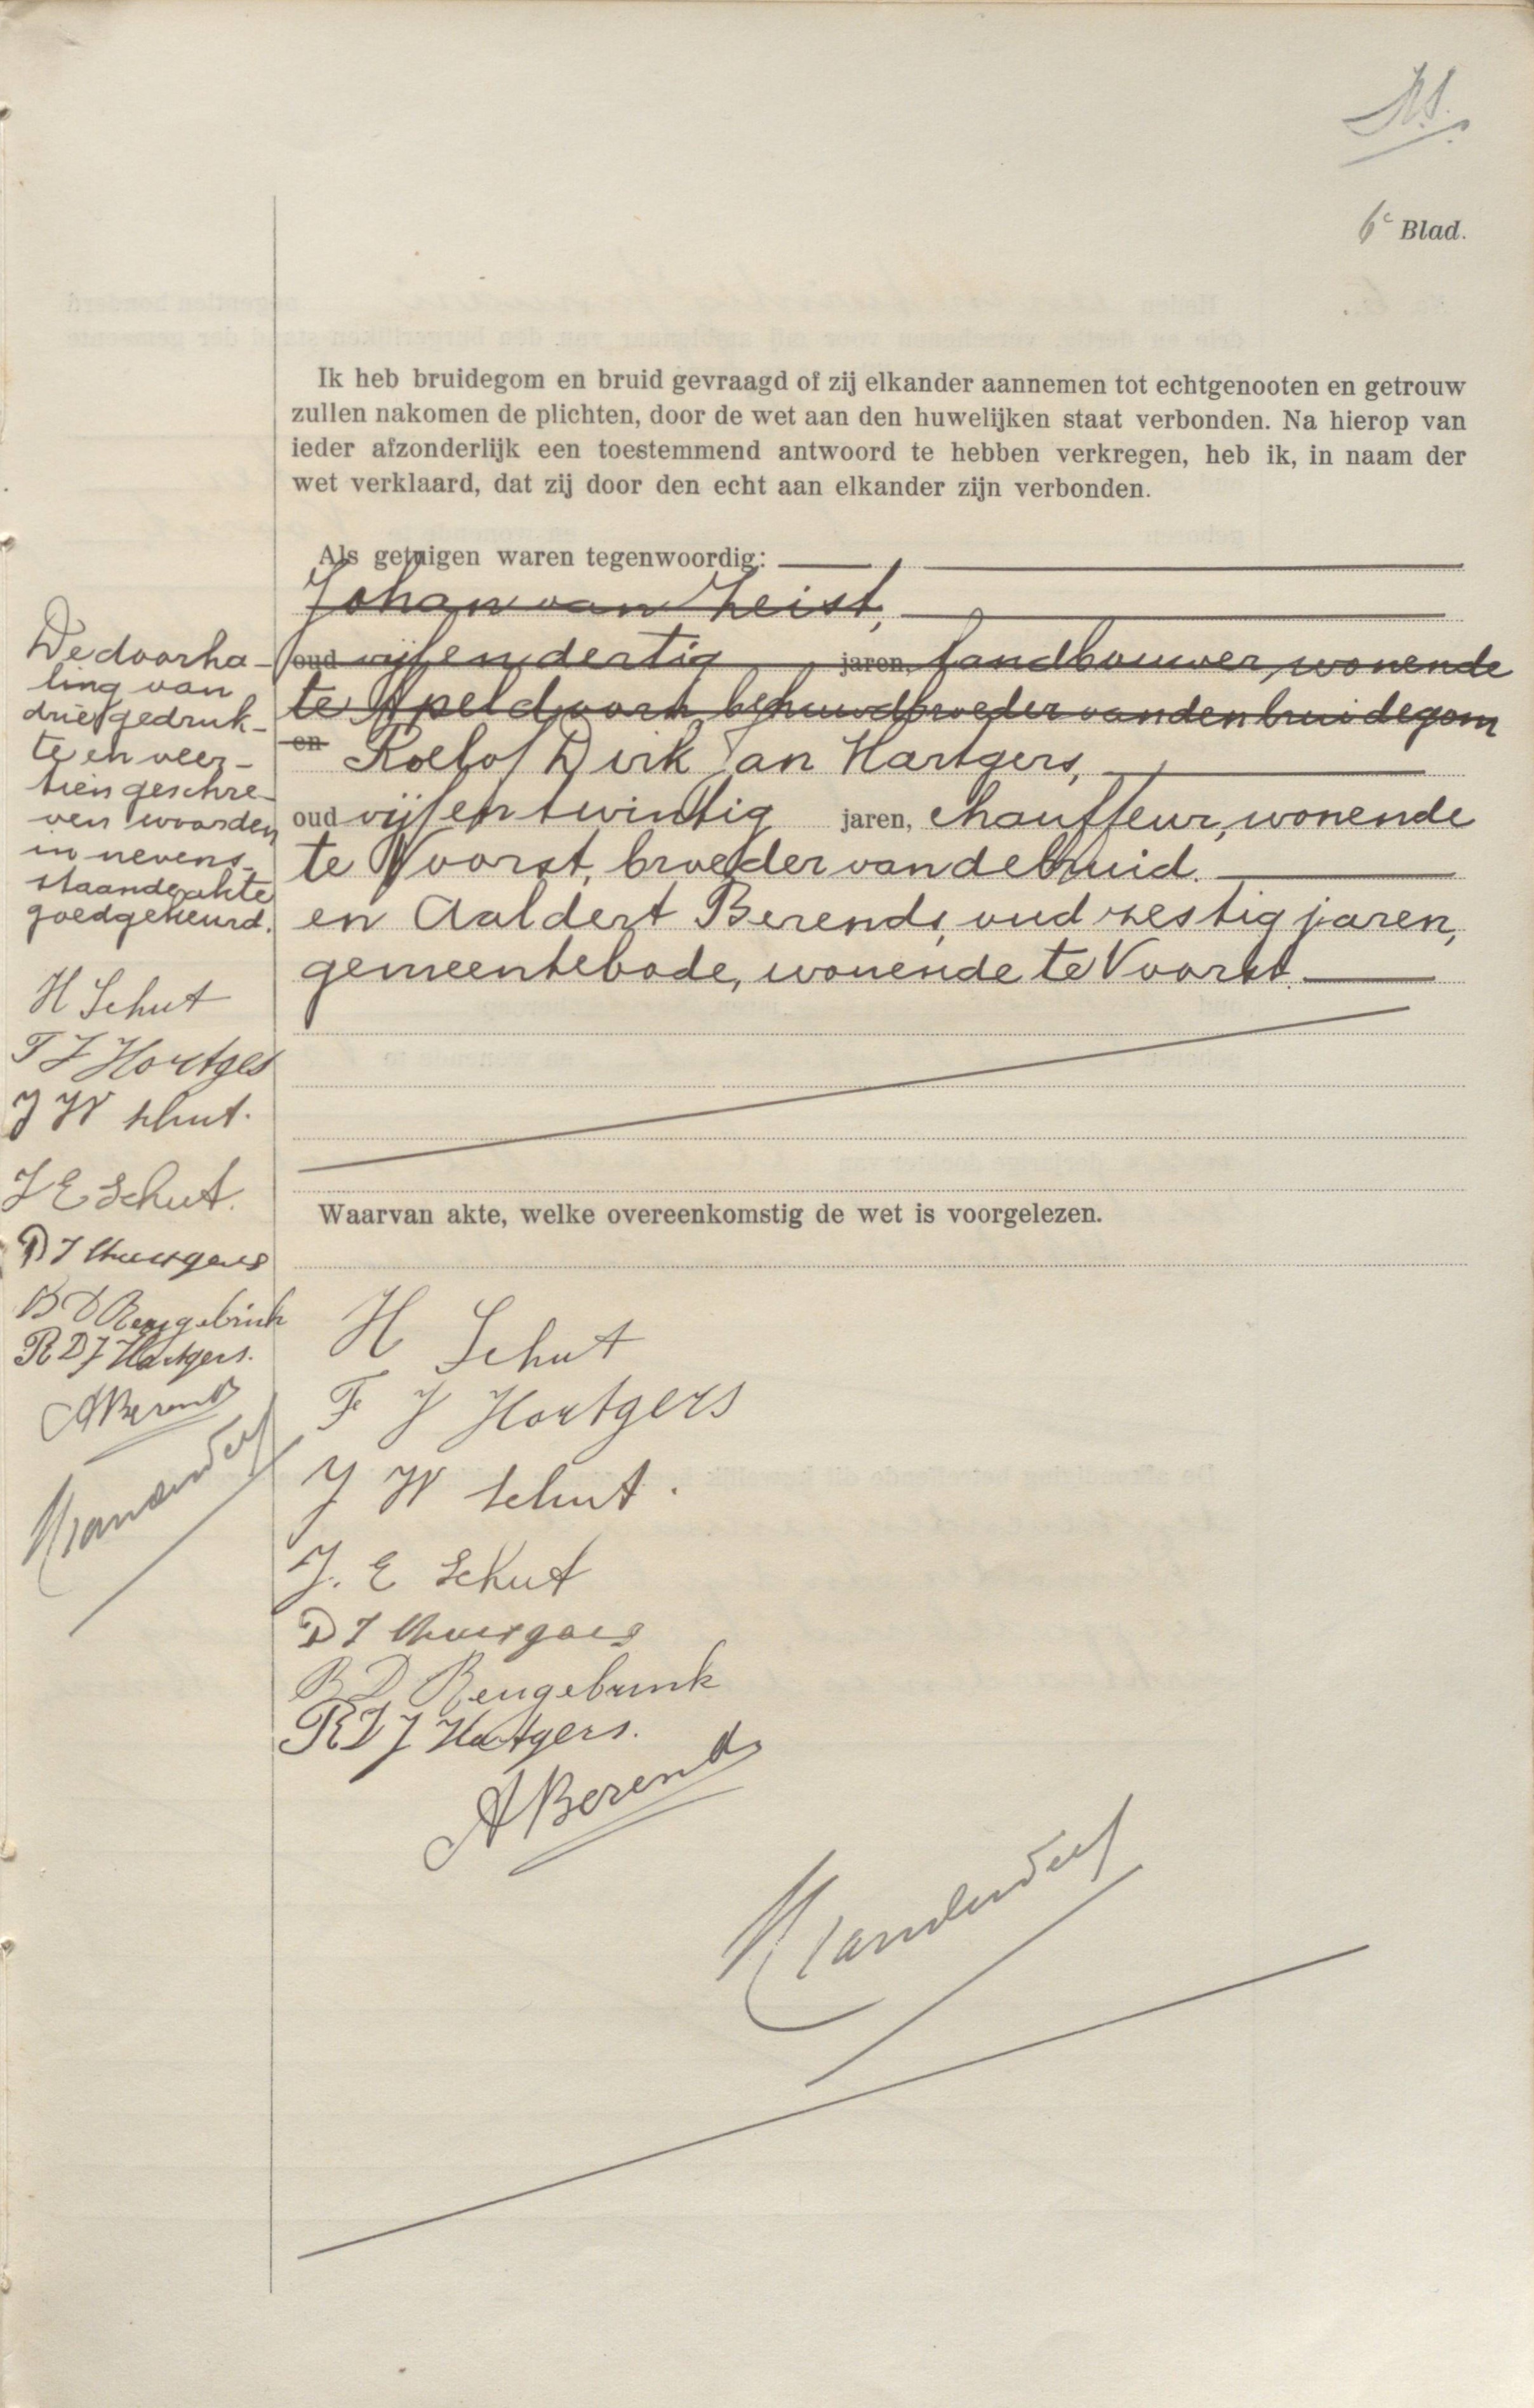 6e Blad.
Ik heb bruidegom en bruid gevraagd of zij elkander aannemen tot echtgenooten en getrouw
zullen nakomen de plichten, door de wet aan den huwelijken staat verbonden. Na hierop van
ieder afzonderlijk een toestemmend antwoord te hebben verkregen, heb ik, in naam der
wet verklaard, dat zij door den echt aan elkander zijn verbonden.
Als getuigen waren tegenwoordig:
Johan van Zeist,
oud vijfendertig jaren, landbouwer, wonende
te Apeldoorn behuwdbroeder van den bruidegom
en Roelof Dirk Jan Hartgers,
oud vijfentwintig jaren, chauffeur, wonende
te Voorst, broeder van de bruid.
en Aaldert Berends, oud zestig jaren,
gemeentebode, wonende te Voorst.
Waarvan akte, welke overeenkomstig de wet is voorgelezen.
H Schut
F J Hartgers
J W Schut.
J. E Schut
D J
B D Rengebrink
R D J Hartgers.
A Berends
De doorha-
ling van
drie gedruk-
te en veer-
tien geschre-
ven woorden
in nevens-
staande akte
goedgekeurd.
H Schut
F J Hartges
J W Schut.
J E Schut.
D J
B D Rengebrink
R D J Hartgers.
A Berends